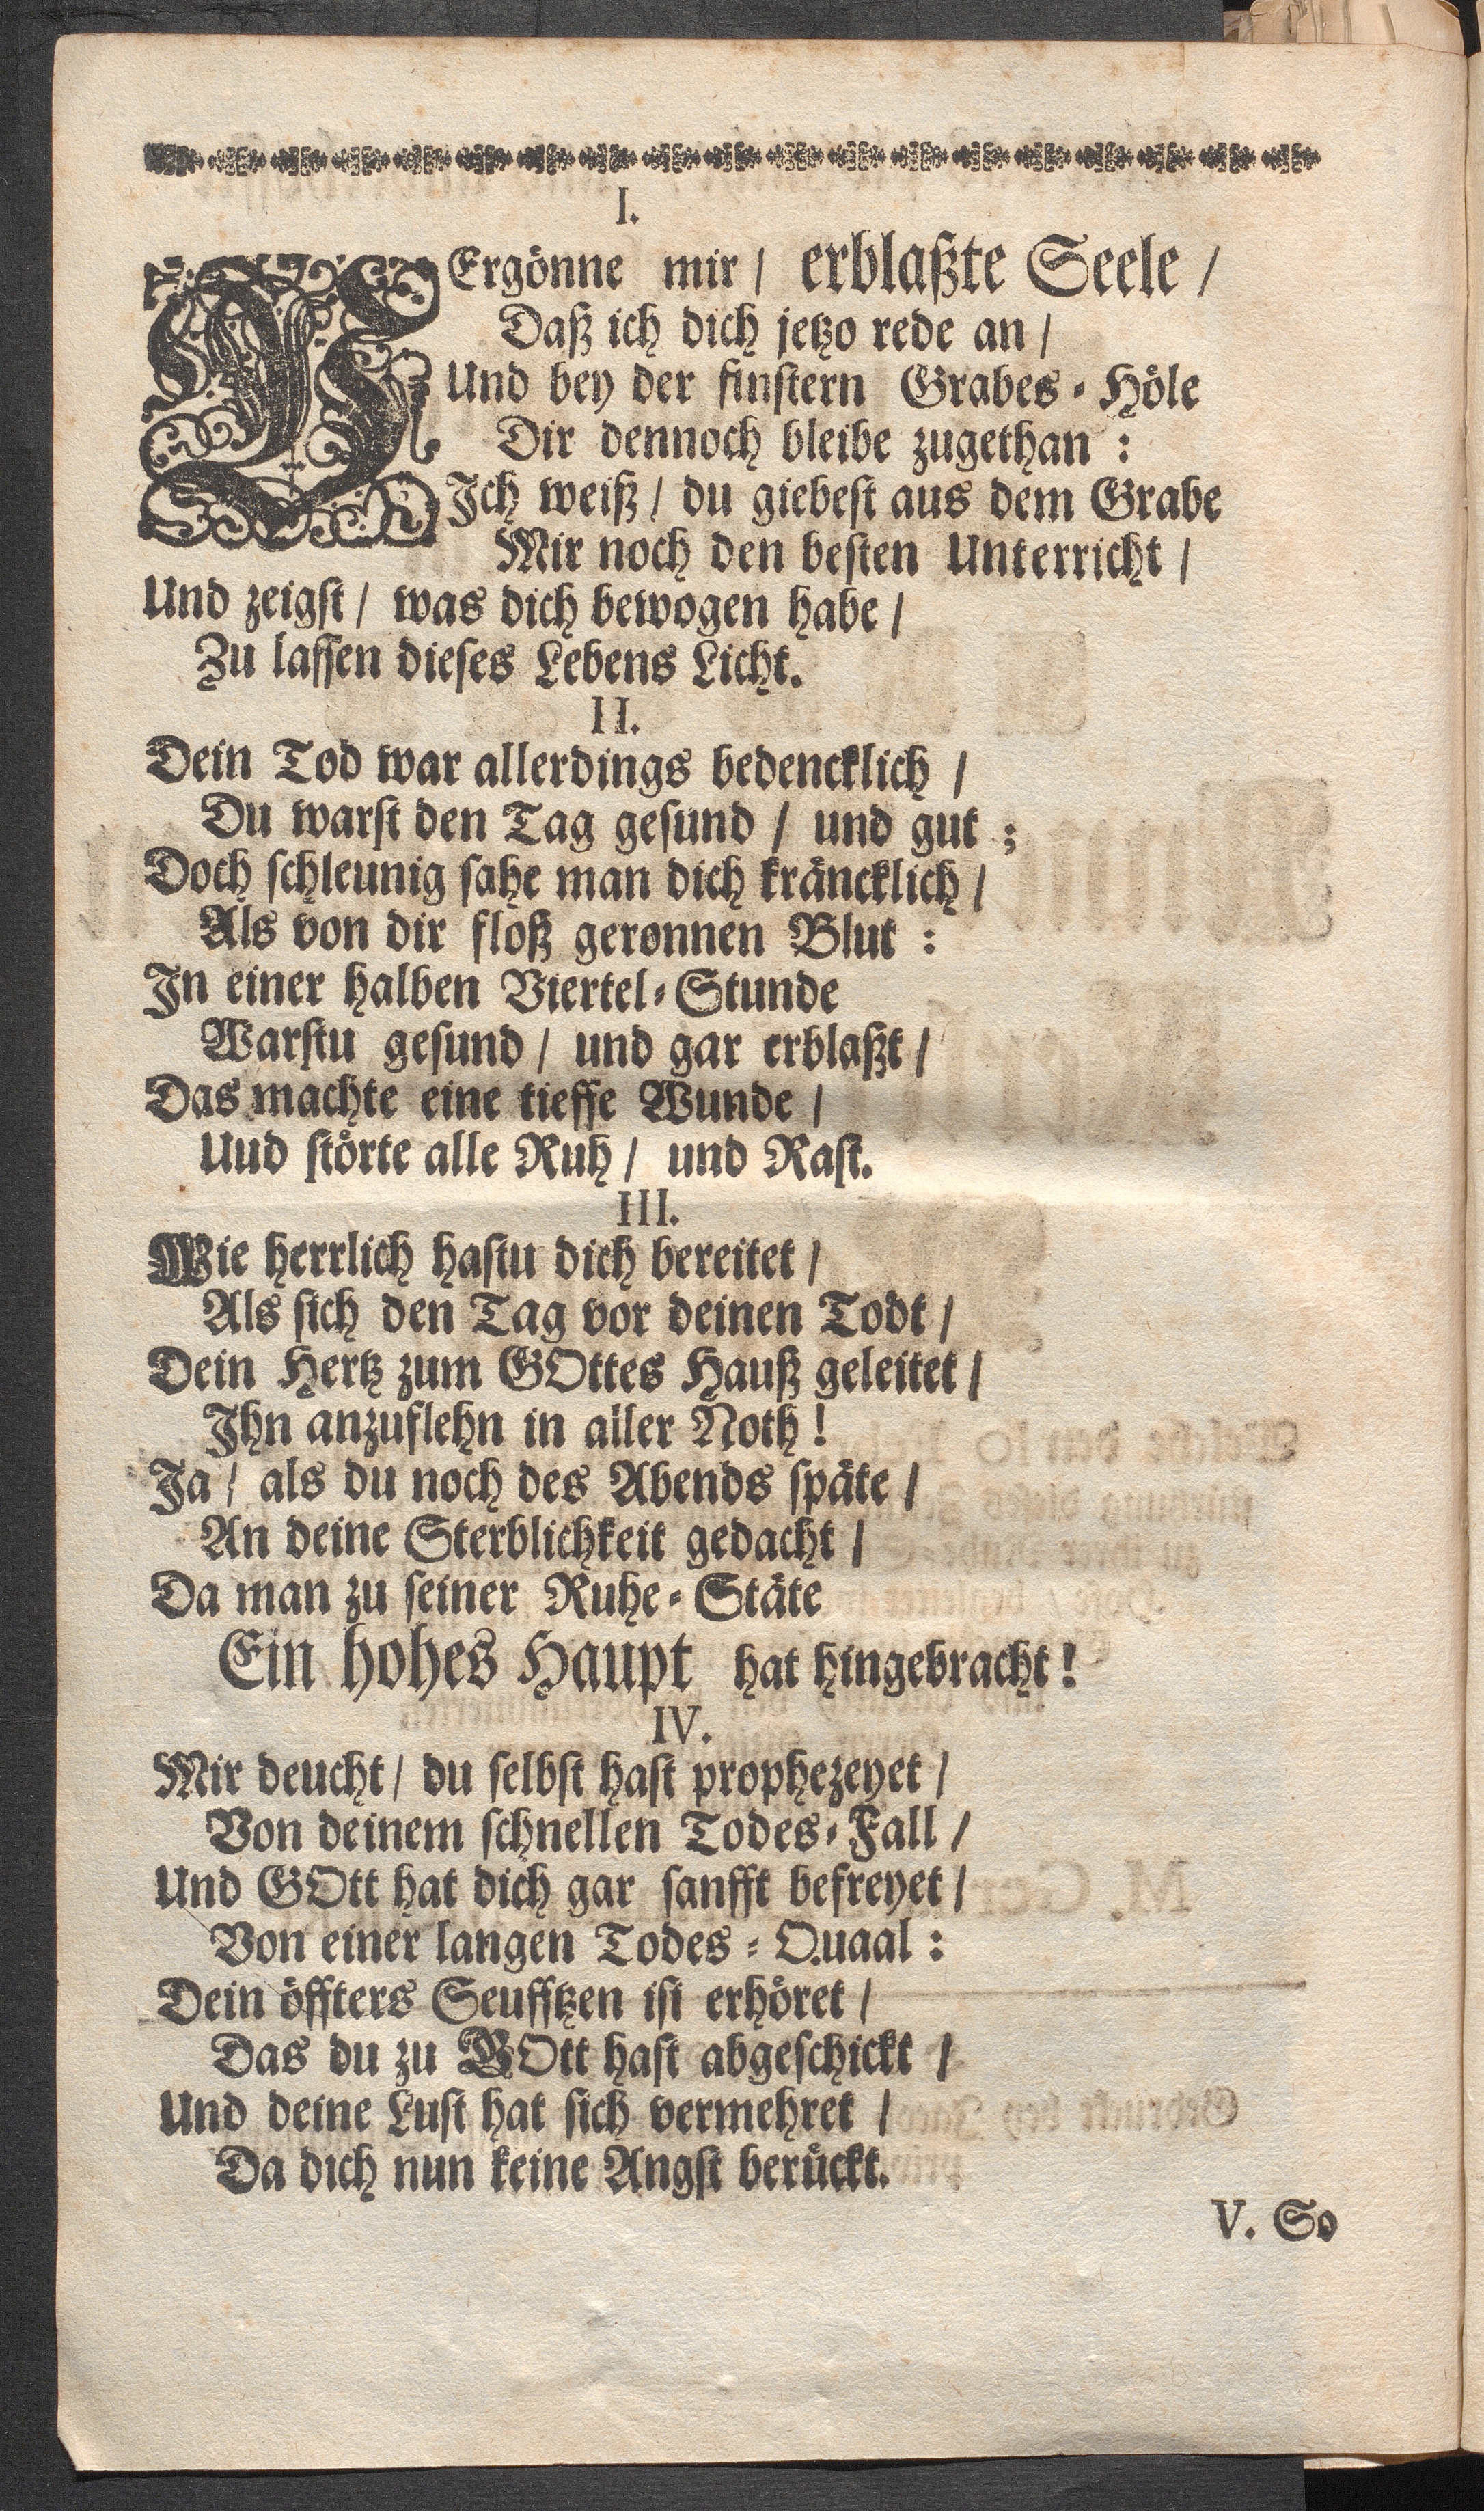 I.
VErgönne mir / erblaßte Seele /
Daß ich dich jetzo rede an /
Und bey der finstern Grabes-Höle
Dir dennoch bleibe zugethan :
Ich weiß / du giebest aus dem Grabe
Mir noch den besten Unterricht /
Und zeigst / was dich bewogen habe /
Zu lassen dieses Lebens Licht.
II.
Dein Tod war allerdings bedencklich /
Du warst den Tag gesund / und gut ;
Doch schleunig sahe man dich kräncklich /
Als von dir floß geronnen Blut :
In einer halben Viertel-Stunde
Warstu gesund / und gar erblaßt /
Das machte eine tieffe Wunde /
Uud störte alle Ruh / und Rast.
III.
Wie herrlich hastu dich bereitet /
Als sich den Tag vor deinen Todt /
Dein Hertz zum GOttes Hauß geleitet /
Ihn anzuflehn in aller Noth !
Ja / als du noch des Abends späte /
An deine Sterblichkeit gedacht /
Da man zu seiner Ruhe-Stäte
Ein hohes Haupt hat hingebracht !
IV.
Mir deucht / du selbst hast prophezeyet /
Von deinem schnellen Todes-Fall /
Und GOtt hat dich gar sanfft befreyet /
Von einer langen Todes-Quaal :
Dein öffters Seufftzen ist erhöret /
Das du zu GOtt hast abgeschickt /
Und deine Lust hat sich vermehret /
Da dich nun keine Angst berückt.
V. So